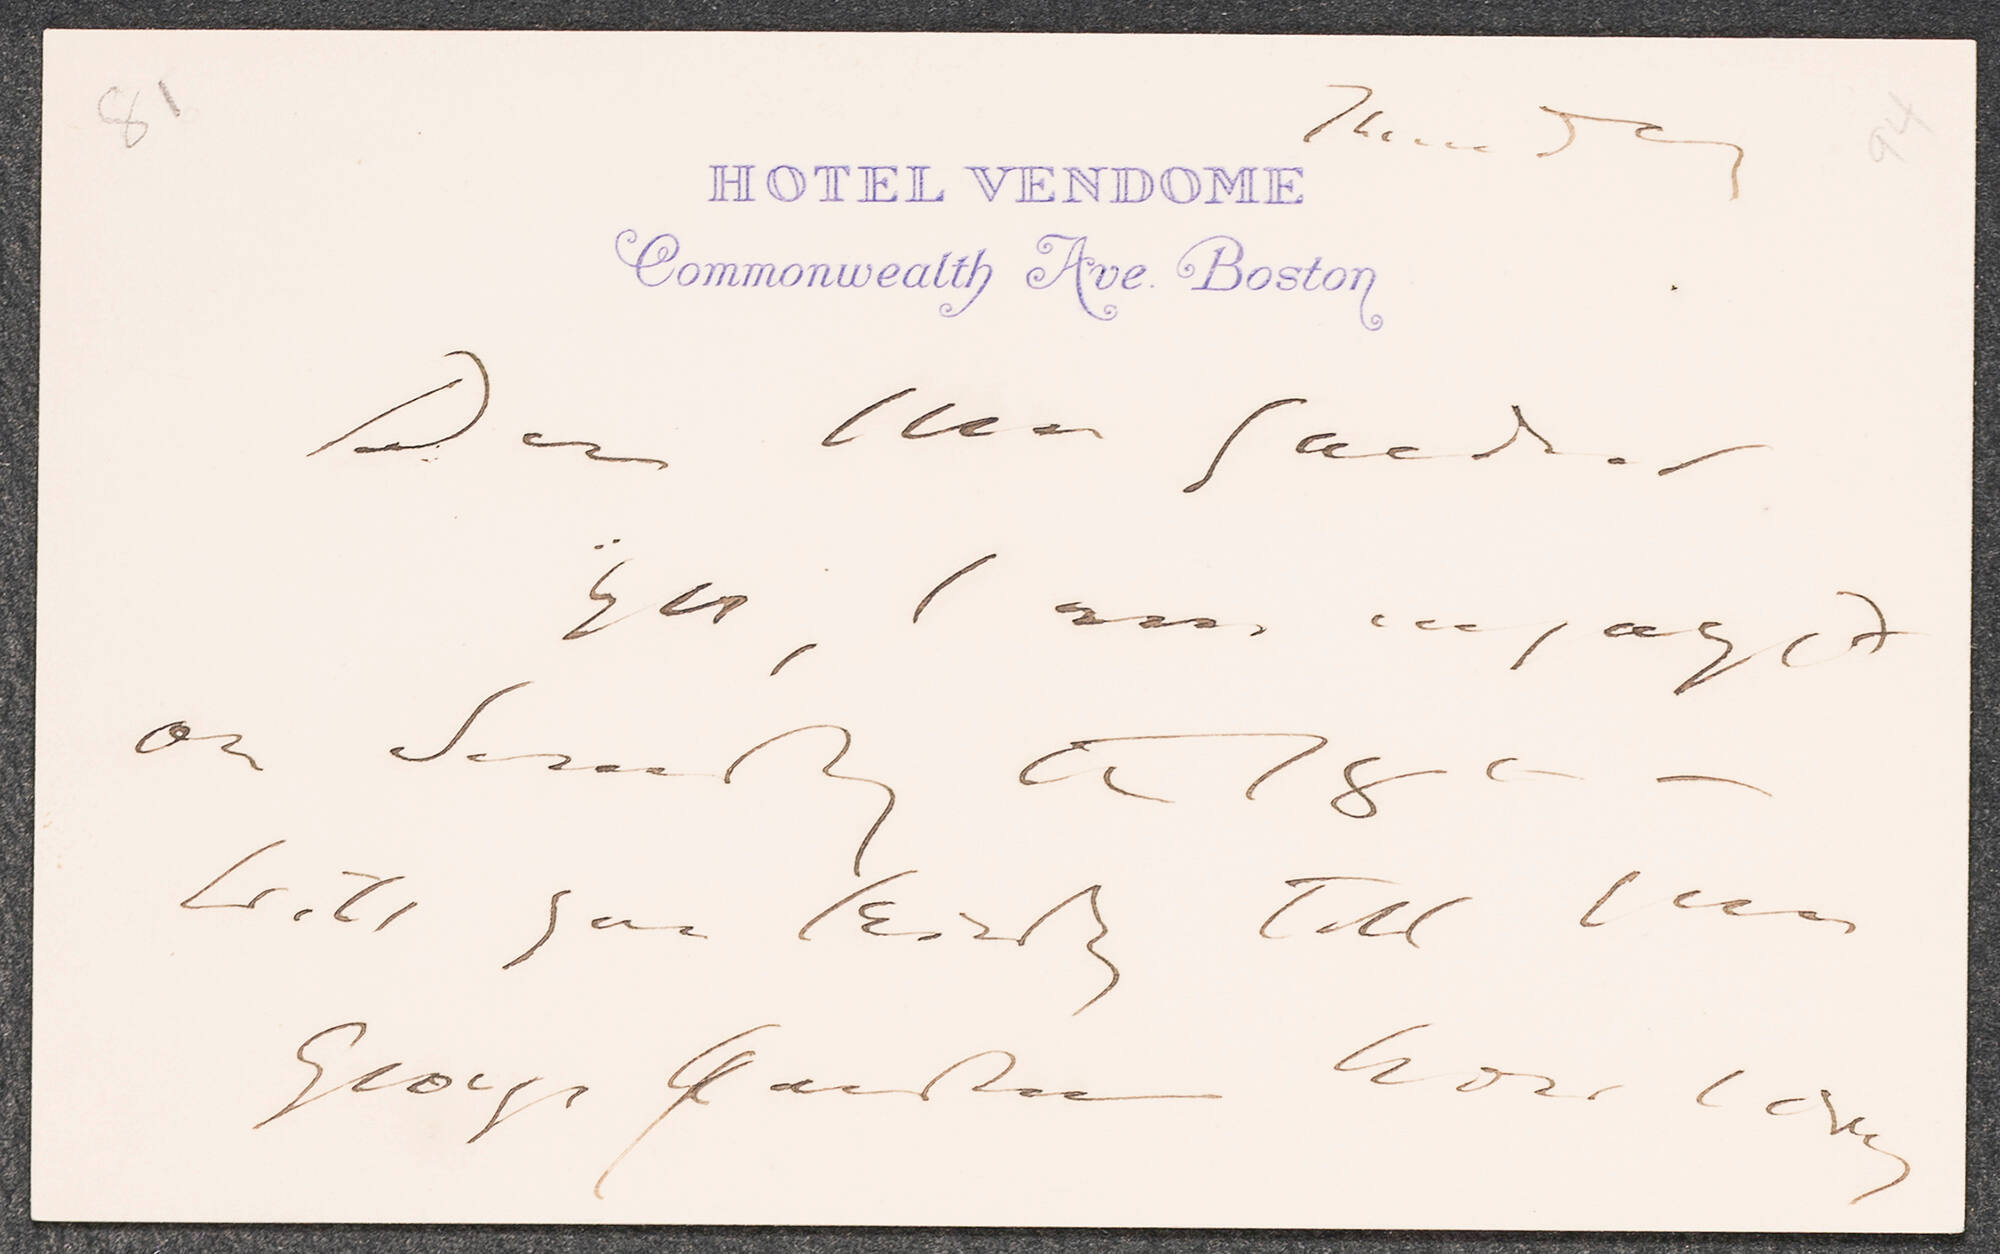 81
Thursday
94
HOTEL VENDOME
Commonwealth Ave. Boston
Dear Mrs Gardner
Yes, I am engaged
on Sunday
Will you kindly tell Mrs
George Gardner how very